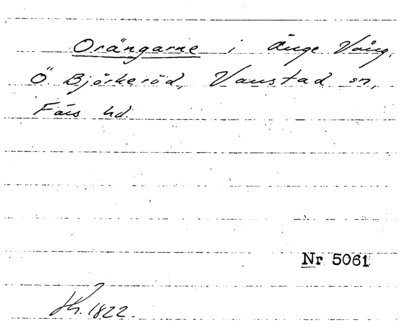 Orängarne i Änge Vång,
Ö. Björkeröd, Vanstad sn,
Färs hd.
Nr 5061
Kr. 1822.